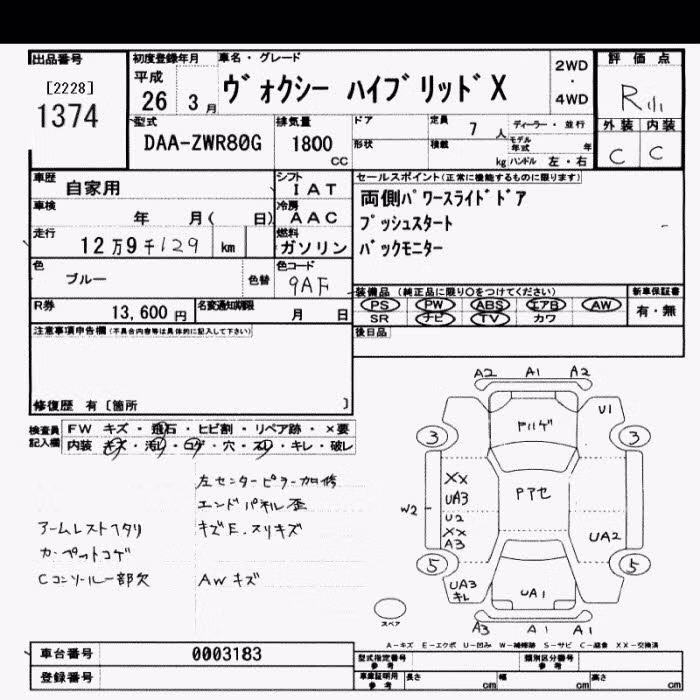 出品番号
[2228]
1374
初度登録年月
平成
26 3月
車名・グレード
ヴォクシー ハイブリッドX
2WD
・
4WD
評価点
R
外装 内装
C C
型式
DAA-ZWR80G
排気量
1800
CC
ドア
形状
定員 7 人
積載 kg
ディーラー・並行
モデル年式 年
ハンドル 左・右
車歴
自家用
シフト
IAT
車検
年 月( 日)
冷房
AAC
走行
12万9千129 km
燃料
ガソリン
色
ブルー
色替
色コード
9AF
R券
13,600円
名変通知期限
月 日
セールスポイント(正常に機能するものに限ります)
両側パワースライドドア
プッシュスタート
バックモニター
装備品(純正品に限り○をつけてください)
PS PW ABS エアB AW
SR ナビ TV カワ
新車保証書
有・無
後日品
注意事項申告欄(不具合内容等は具体的に記入して下さい)
修復歴 有〔箇所 〕
検査員記入欄
FW キズ・飛石・ヒビ割・リペア跡・×要
内装 キズ・汚れ・コゲ・穴・スレ・キレ・破レ
左センターピラー加修
エンドパネル歪
アームレストヘタリ
キズE.スリキズ
カーペットコゲ
Cコンソール一部欠
AWキズ
A2 A1 A2
U1
3 3
XX
UA3
W2
U2
XX
A3
UA2
5 5
UA3
キレ
UA1
A3 A1 A1
スペア
A-キズ E-エクボ U-凹み W-補修跡 S-サビ C-腐食 XX-交換済
車台番号
0003183
登録番号
型式指定番号
参考
類別区分番号
参考
車庫証明用
参考
長さ cm
幅 cm
高さ cm